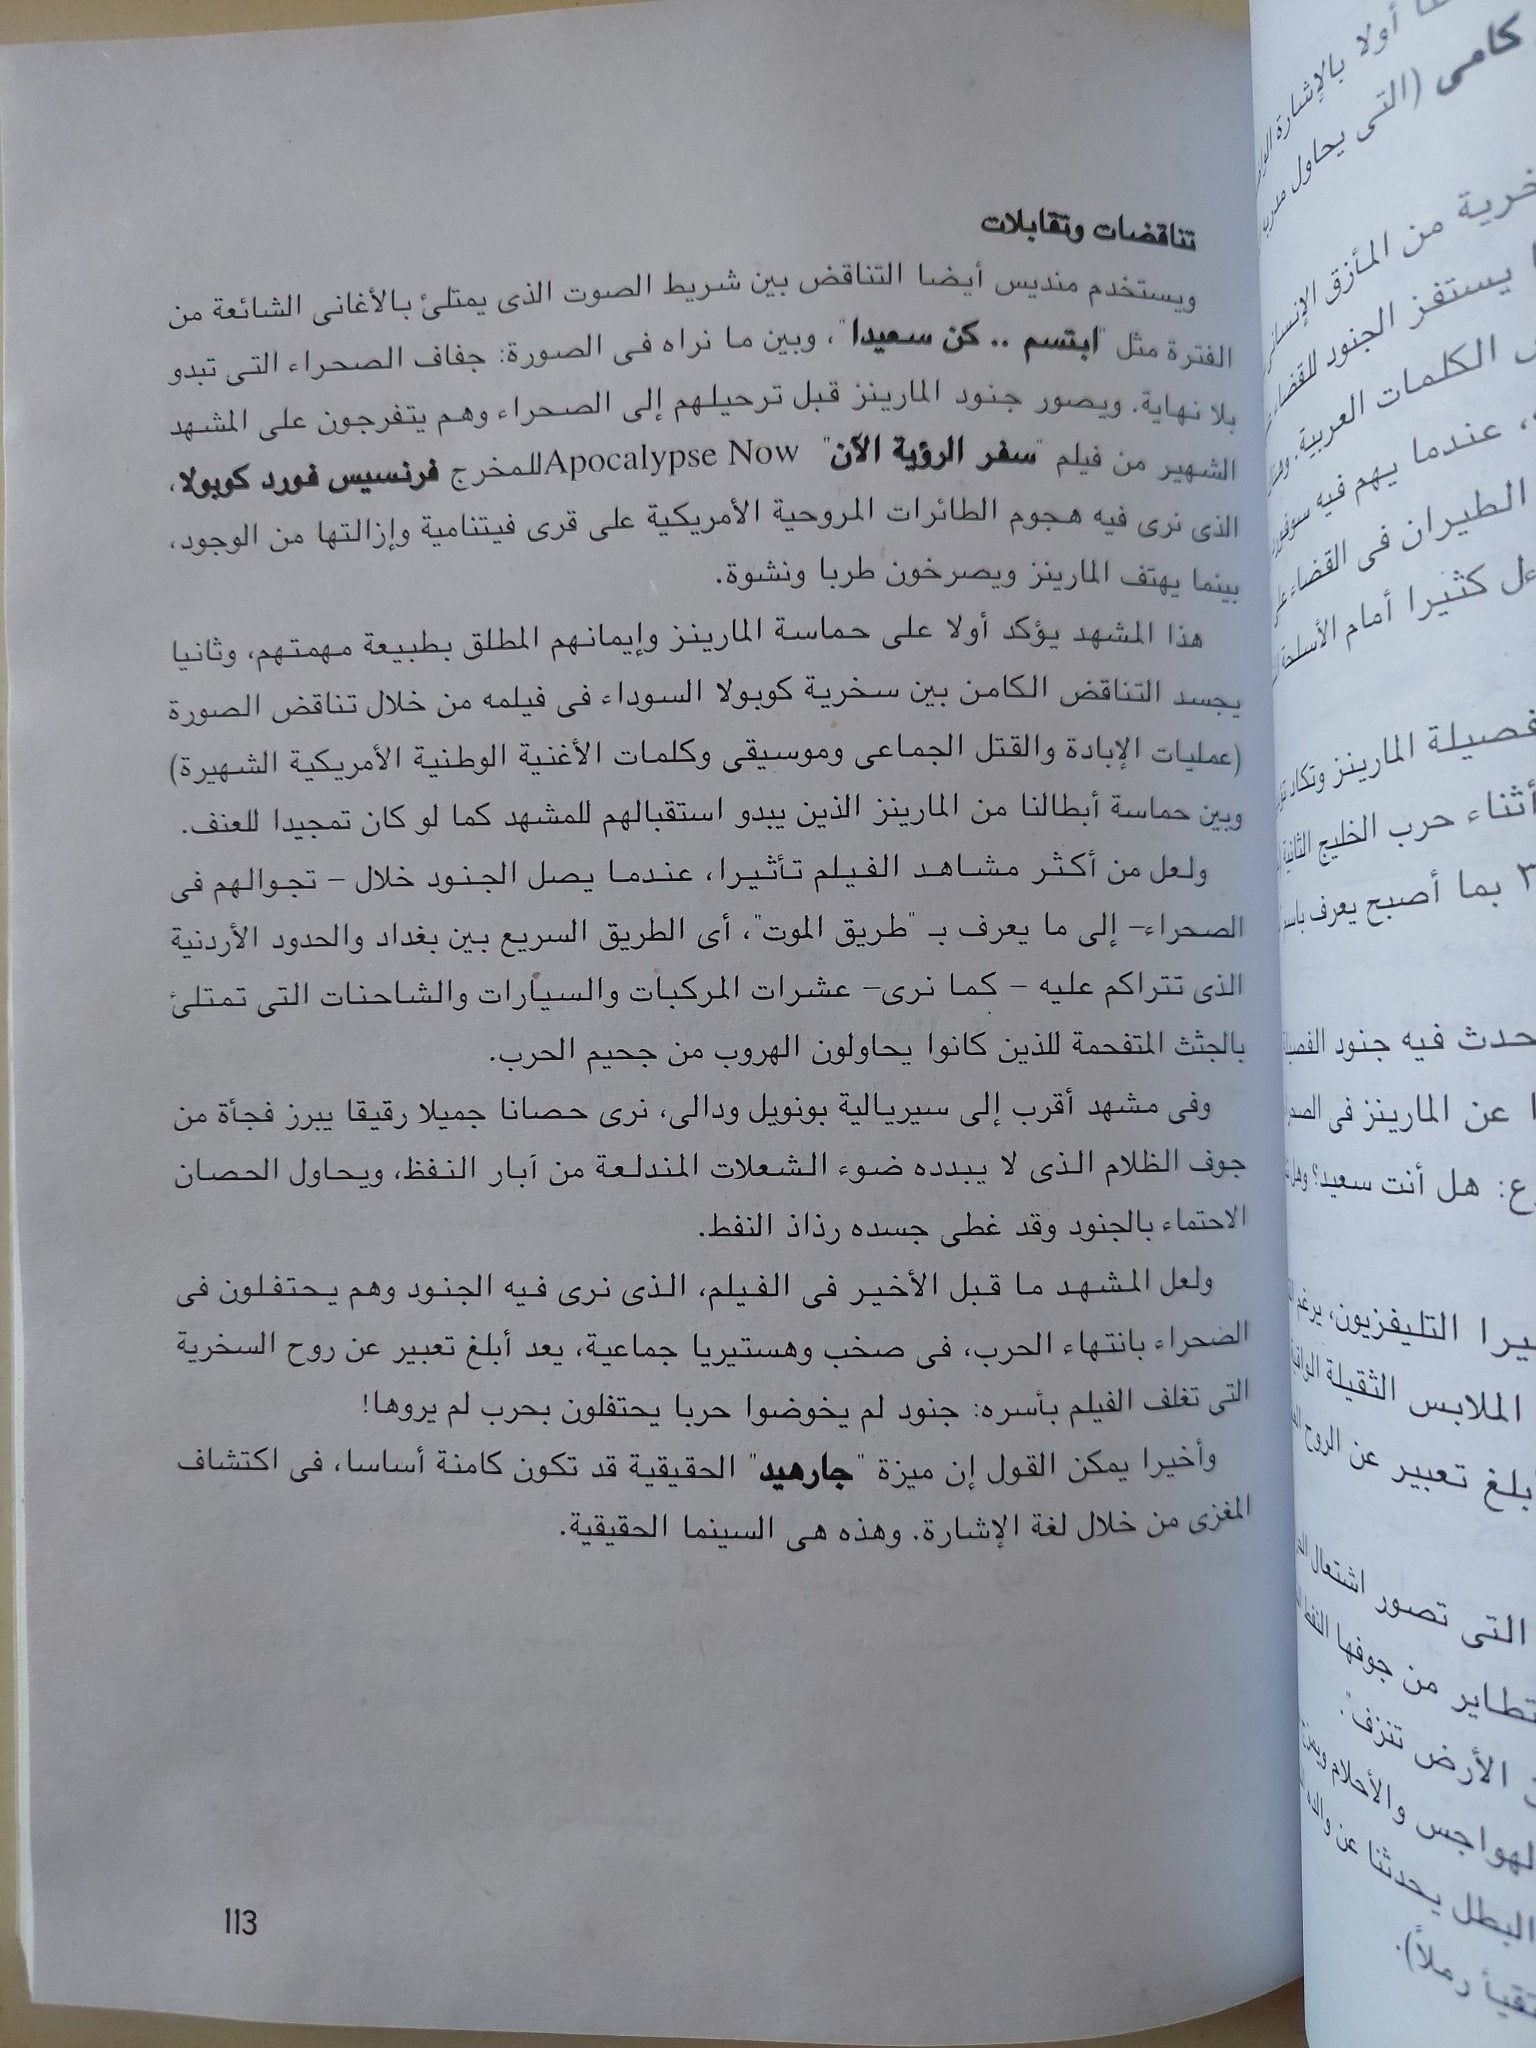 تناقضات وتقابلات
ويستخدم منديس أيضا التناقض بين شريط الصوت الذى يمتلئ بالأغانى الشائعة من
الفترة مثل "ابتسم .. كن سعيدا"، وبين ما نراه فى الصورة: جفاف الصحراء التى تبدو
بلا نهاية. ويصور جنود المارينز قبل ترحيلهم إلى الصحراء وهم يتفرجون على المشهد
الشهير من فيلم "سفر الرؤية الآن" Apocalypse Now للمخرج فرنسيس فورد كوبولا،
الذى نرى فيه هجوم الطائرات المروحية الأمريكية على قرى فيتنامية وإزالتها من الوجود،
بينما يهتف المارينز ويصرخون طربا ونشوة.
هذا المشهد يؤكد أولا على حماسة المارينز وإيمانهم المطلق بطبيعة مهمتهم، وثانيا
يجسد التناقض الكامن بين سخرية كوبولا السوداء فى فيلمه من خلال تناقض الصورة
(عمليات الإبادة والقتل الجماعى وموسيقى وكلمات الأغنية الوطنية الأمريكية الشهيرة)
وبين حماسة أبطالنا من المارينز الذين يبدو استقبالهم للمشهد كما لو كان تمجيدا للعنف.
ولعل من أكثر مشاهد الفيلم تأثيرا، عندما يصل الجنود خلال – تجوالهم فى
الصحراء– إلى ما يعرف بـ "طريق الموت"، أى الطريق السريع بين بغداد والحدود الأردنية
الذى تتراكم عليه – كما نرى– عشرات المركبات والسيارات والشاحنات التى تمتلئ
بالجثث المتفحمة للذين كانوا يحاولون الهروب من جحيم الحرب.
وفى مشهد أقرب إلى سيريالية بونويل ودالى، نرى حصانا جميلا رقيقا يبرز فجأة من
جوف الظلام الذى لا يبدده ضوء الشعلات المندلعة من آبار النفظ، ويحاول الحصان
الاحتماء بالجنود وقد غطى جسده رذاذ النفط.
ولعل المشهد ما قبل الأخير فى الفيلم، الذى نرى فيه الجنود وهم يحتفلون فى
الصحراء بانتهاء الحرب، فى صخب وهستيريا جماعية، يعد أبلغ تعبير عن روح السخرية
التى تغلف الفيلم بأسره: جنود لم يخوضوا حربا يحتفلون بحرب لم يروها!
وأخيرا يمكن القول إن ميزة "جارهيد" الحقيقية قد تكون كامنة أساسا، فى اكتشاف
المغزى من خلال لغة الإشارة. وهذه هى السينما الحقيقية.
113
أولا بالإشارة
كامى (التى يحاول مدرب
من المأزق الإنسانى
يستفز الجنود للقضاء
الكلمات العربية.
عندما يهم فيه
الطيران فى القضاء على
كثيرا أمام الأسلحة
فصيلة المارينز وتكاد
أثناء حرب الخليج الثانية
بما أصبح يعرف باسم
حدث فيه جنود
عن المارينز فى
هل أنت سعيد؟ وهل
التليفزيون، يرغم
الملابس الثقيلة
تعبير عن الروح
التى تصور اشتعال
من جوفها النفط
الأرض تنزف".
والأحلام
البطل يحدثنا عن والده
رملاً).